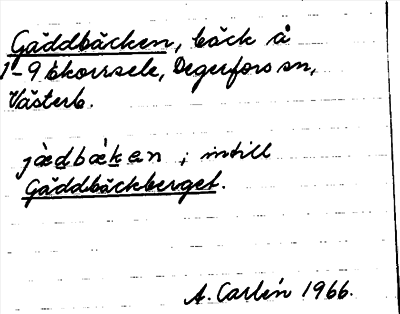 Gäddbäcken, bäck å
1-9 Ekorrsele, Degerfors sn,
Västerb.
jädbäken ; intill
Gäddbäckberget.
A. Carlén 1966.